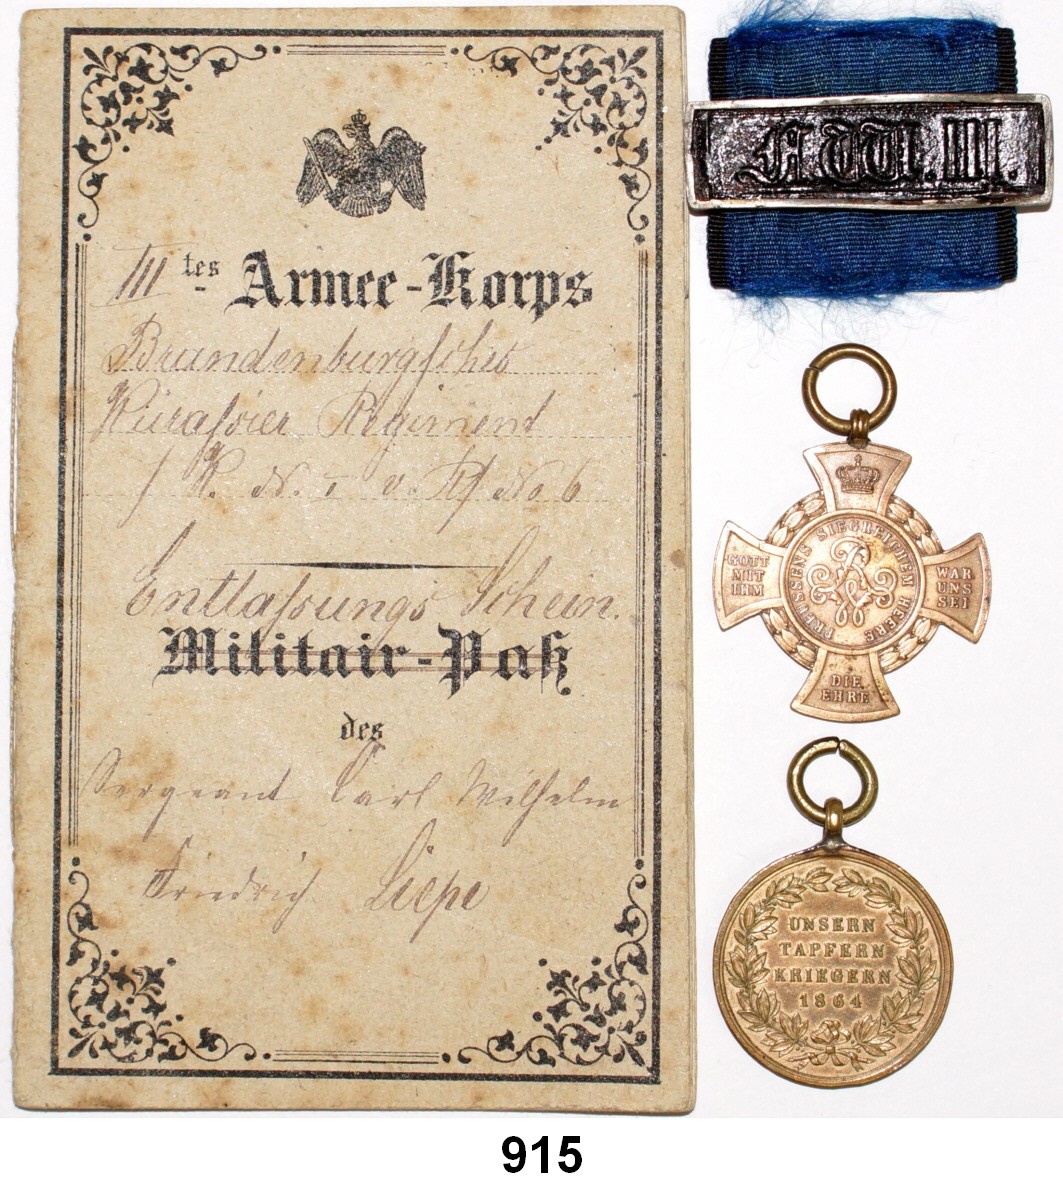 III tes Armee-Korps
Brandenburgsches
Kürassier Regiment
K. N. I v. R No 6
Entlassungs Schein.
Militair-Paß
des
Sergeant Carl Wilhelm
Friedrich Liepe
F.W. III.
PREUSSENS SIEGREICHEM HEERE
GOTT
MIT
IHM
WAR
UNS
SEI
DIE
EHRE
UNSERN
TAPFERN
KRIEGERN
1864
915